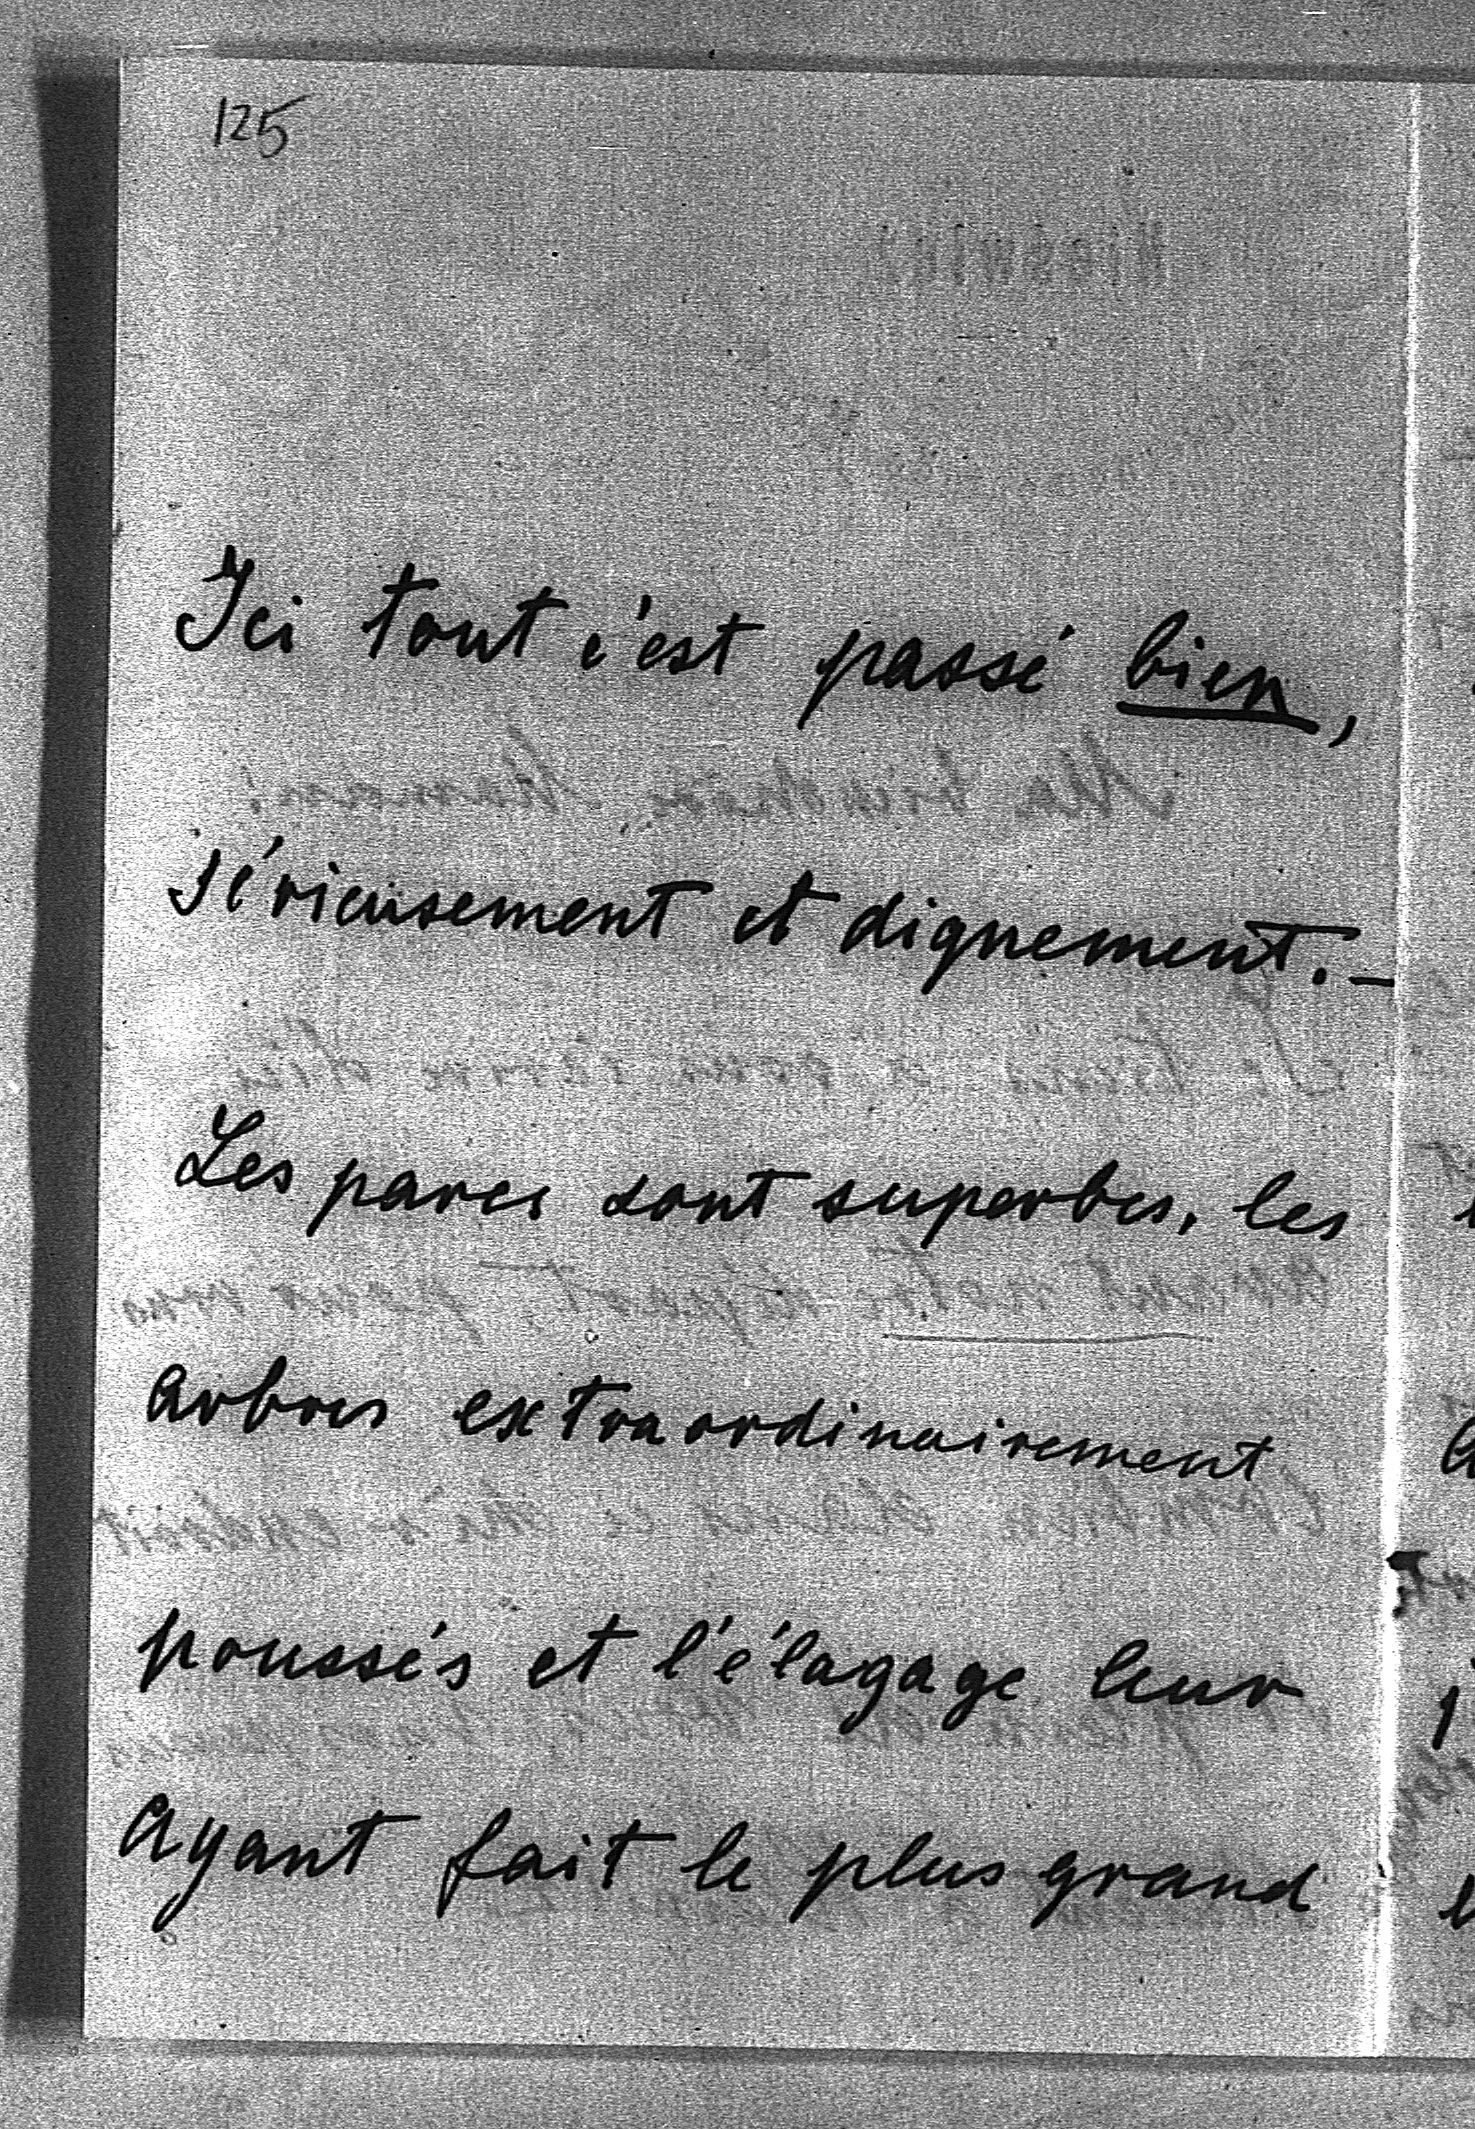 125
Ici tout c'est passé bien,
sérieusement et dignement. –
Les parcs sont superbes, les
arbres extraordinairement
poussés et l'élagage leur
ayant fait le plus grand